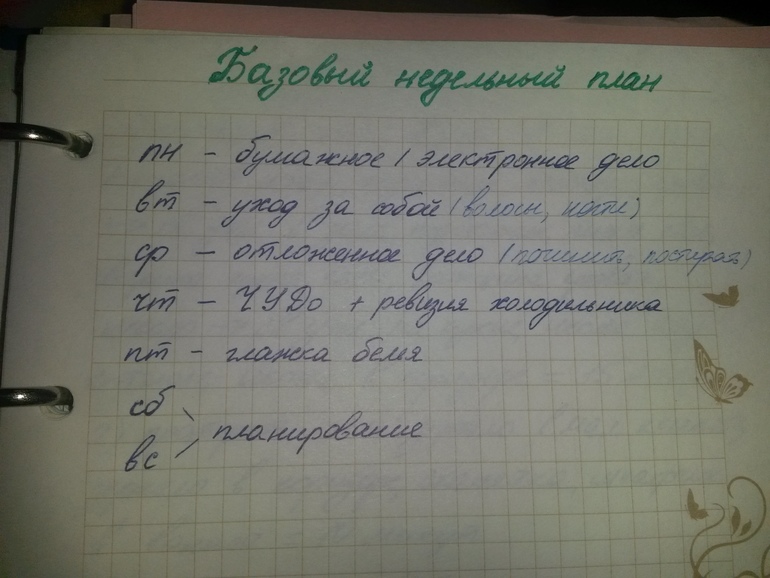 Базовый недельный план
пн - бумажное / электронное дело
вт - уход за собой (волосы, ногти)
ср - отложенное дело (починить, постирать)
чт - ЧУДо + ревизия холодильника
пт - глажка белья
сб
планирование
вс